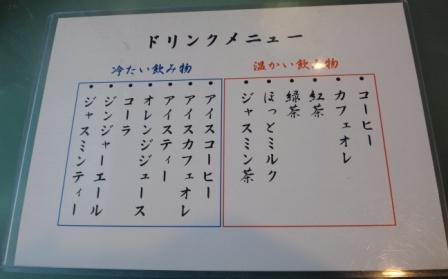 ドリンクメニュー
温かい飲み物
・コーヒー
・カフェオレ
・紅茶
・緑茶
・ほっとミルク
・ジャスミン茶
冷たい飲み物
・アイスコーヒー
・アイスカフェオレ
・アイスティー
・オレンジジュース
・コーラ
・ジンジャーエール
・ジャスミンティー